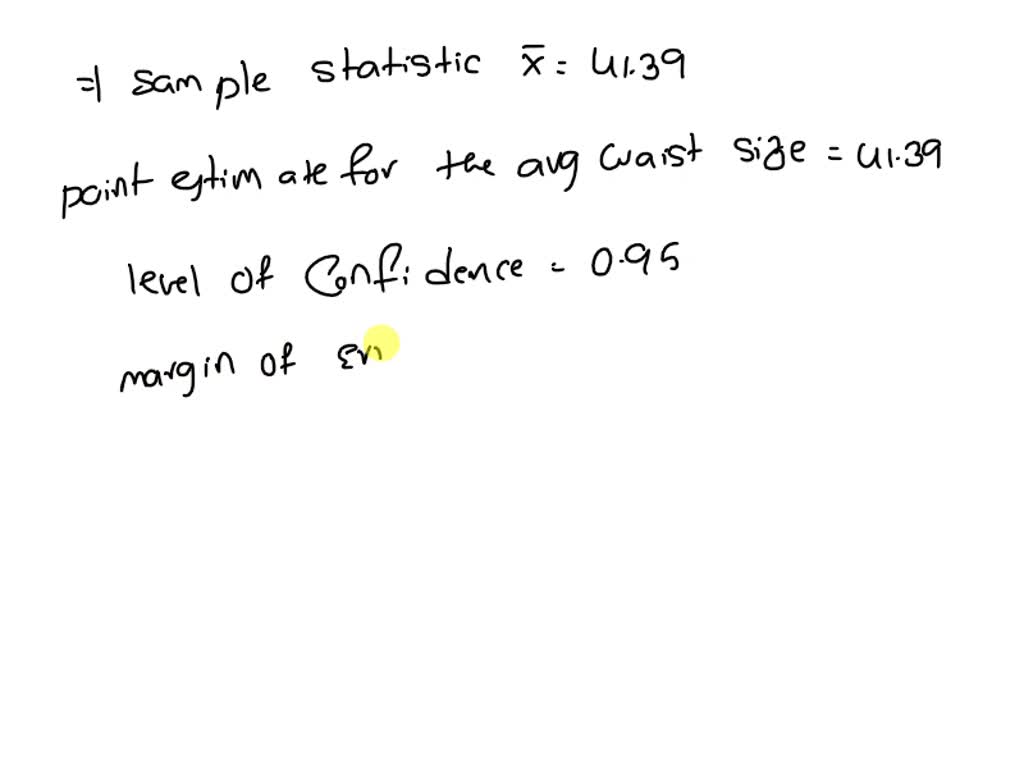 =| sample statistic x̄ = 41.39
point estimate for the avg waist size = 41.39
level of Confidence = 0.95
margin of Err